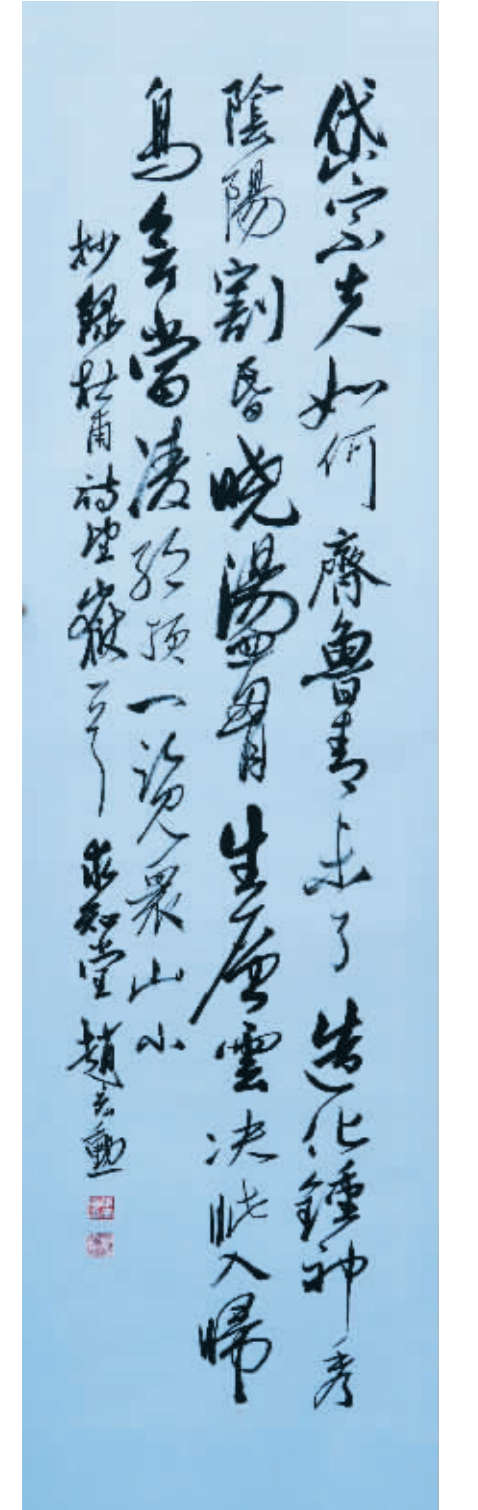 岱宗夫如何齊魯青未了造化鍾神秀
陰陽割昏曉盪胷生層雲決眦入歸
鳥會當凌絶頂一覧衆山小
抄錄杜甫詩望嶽一首 求知堂 趙 勳